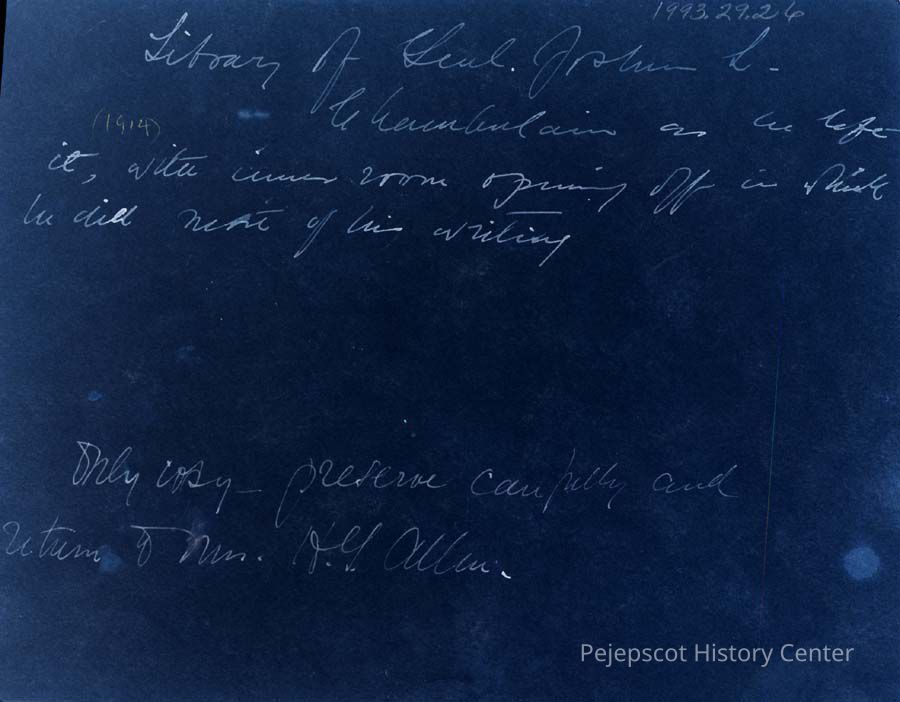 1993.29.26
Library of Genl. Joshua L.
Chamberlain as he left
(1914)
it, with inner room opening off in which
he did most of his writing
Only copy - preserve carefully and
return to Mrs. H.G. Allen.
Pejepscot History Center